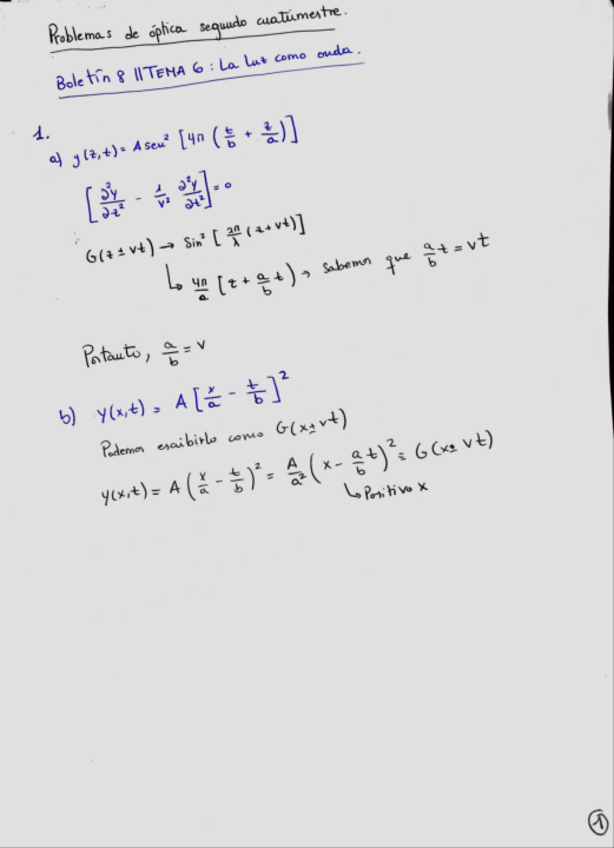 Problemas de óptica segundo cuatrimestre.
Boletín 8 || TEMA 6: La luz como onda.
1.
a) y(z,t) = A sen² [4π (t/b + z/a)]
[∂²y/∂z² - 1/v² ∂²y/∂t²] = 0
G(z ± vt) → Sin² [2π/λ (z + vt)]
↳ 4π/a [z + a/b t) → Sabemos que a/b t = vt
Portanto, a/b = v
b) y(x,t) = A [x/a - t/b]²
Podemos escribirlo como G(x ± vt)
y(x,t) = A (x/a - t/b)² = A/a² (x - a/b t)² = G(x ± vt)
↳ Positivo x
1